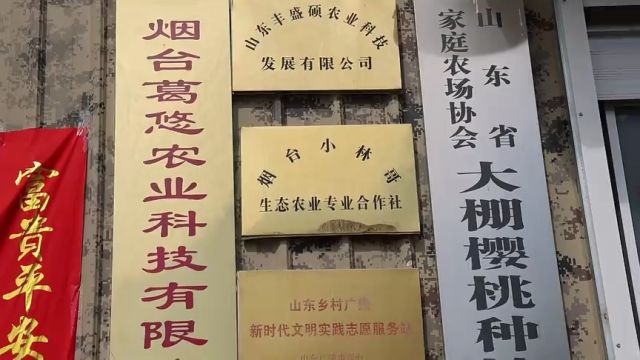 富貴平安
烟台葛悠农业科技有限
山东丰盛硕农业科技
发展有限公司
烟台小林哥
生态农业专业合作社
山东乡村广播
新时代文明实践志愿服务站
山东省
家庭农场协会
大棚樱桃种